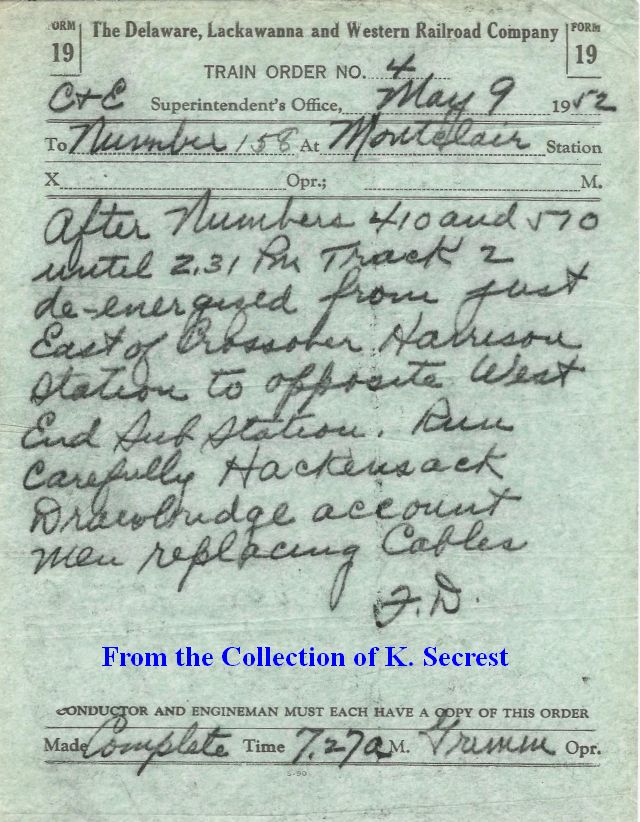 FORM 19 The Delaware, Lackawanna and Western Railroad Company FORM 19
TRAIN ORDER NO. 4
C+E Superintendent's Office, May 9 1952
To Number 158 At Montclair Station
X Opr.; M.
After Numbers 410 and 570
until 2.31 Pm Track 2
de-energised from just
East of Crossover Harrison
Station to opposite West
End Sub Station. Run
Carefully Hackensack
Drawbridge account
men replacing Cables
F.D.
From the Collection of K. Secrest
CONDUCTOR AND ENGINEMAN MUST EACH HAVE A COPY OF THIS ORDER
Made Complete Time 7.27a M. Grimm Opr.